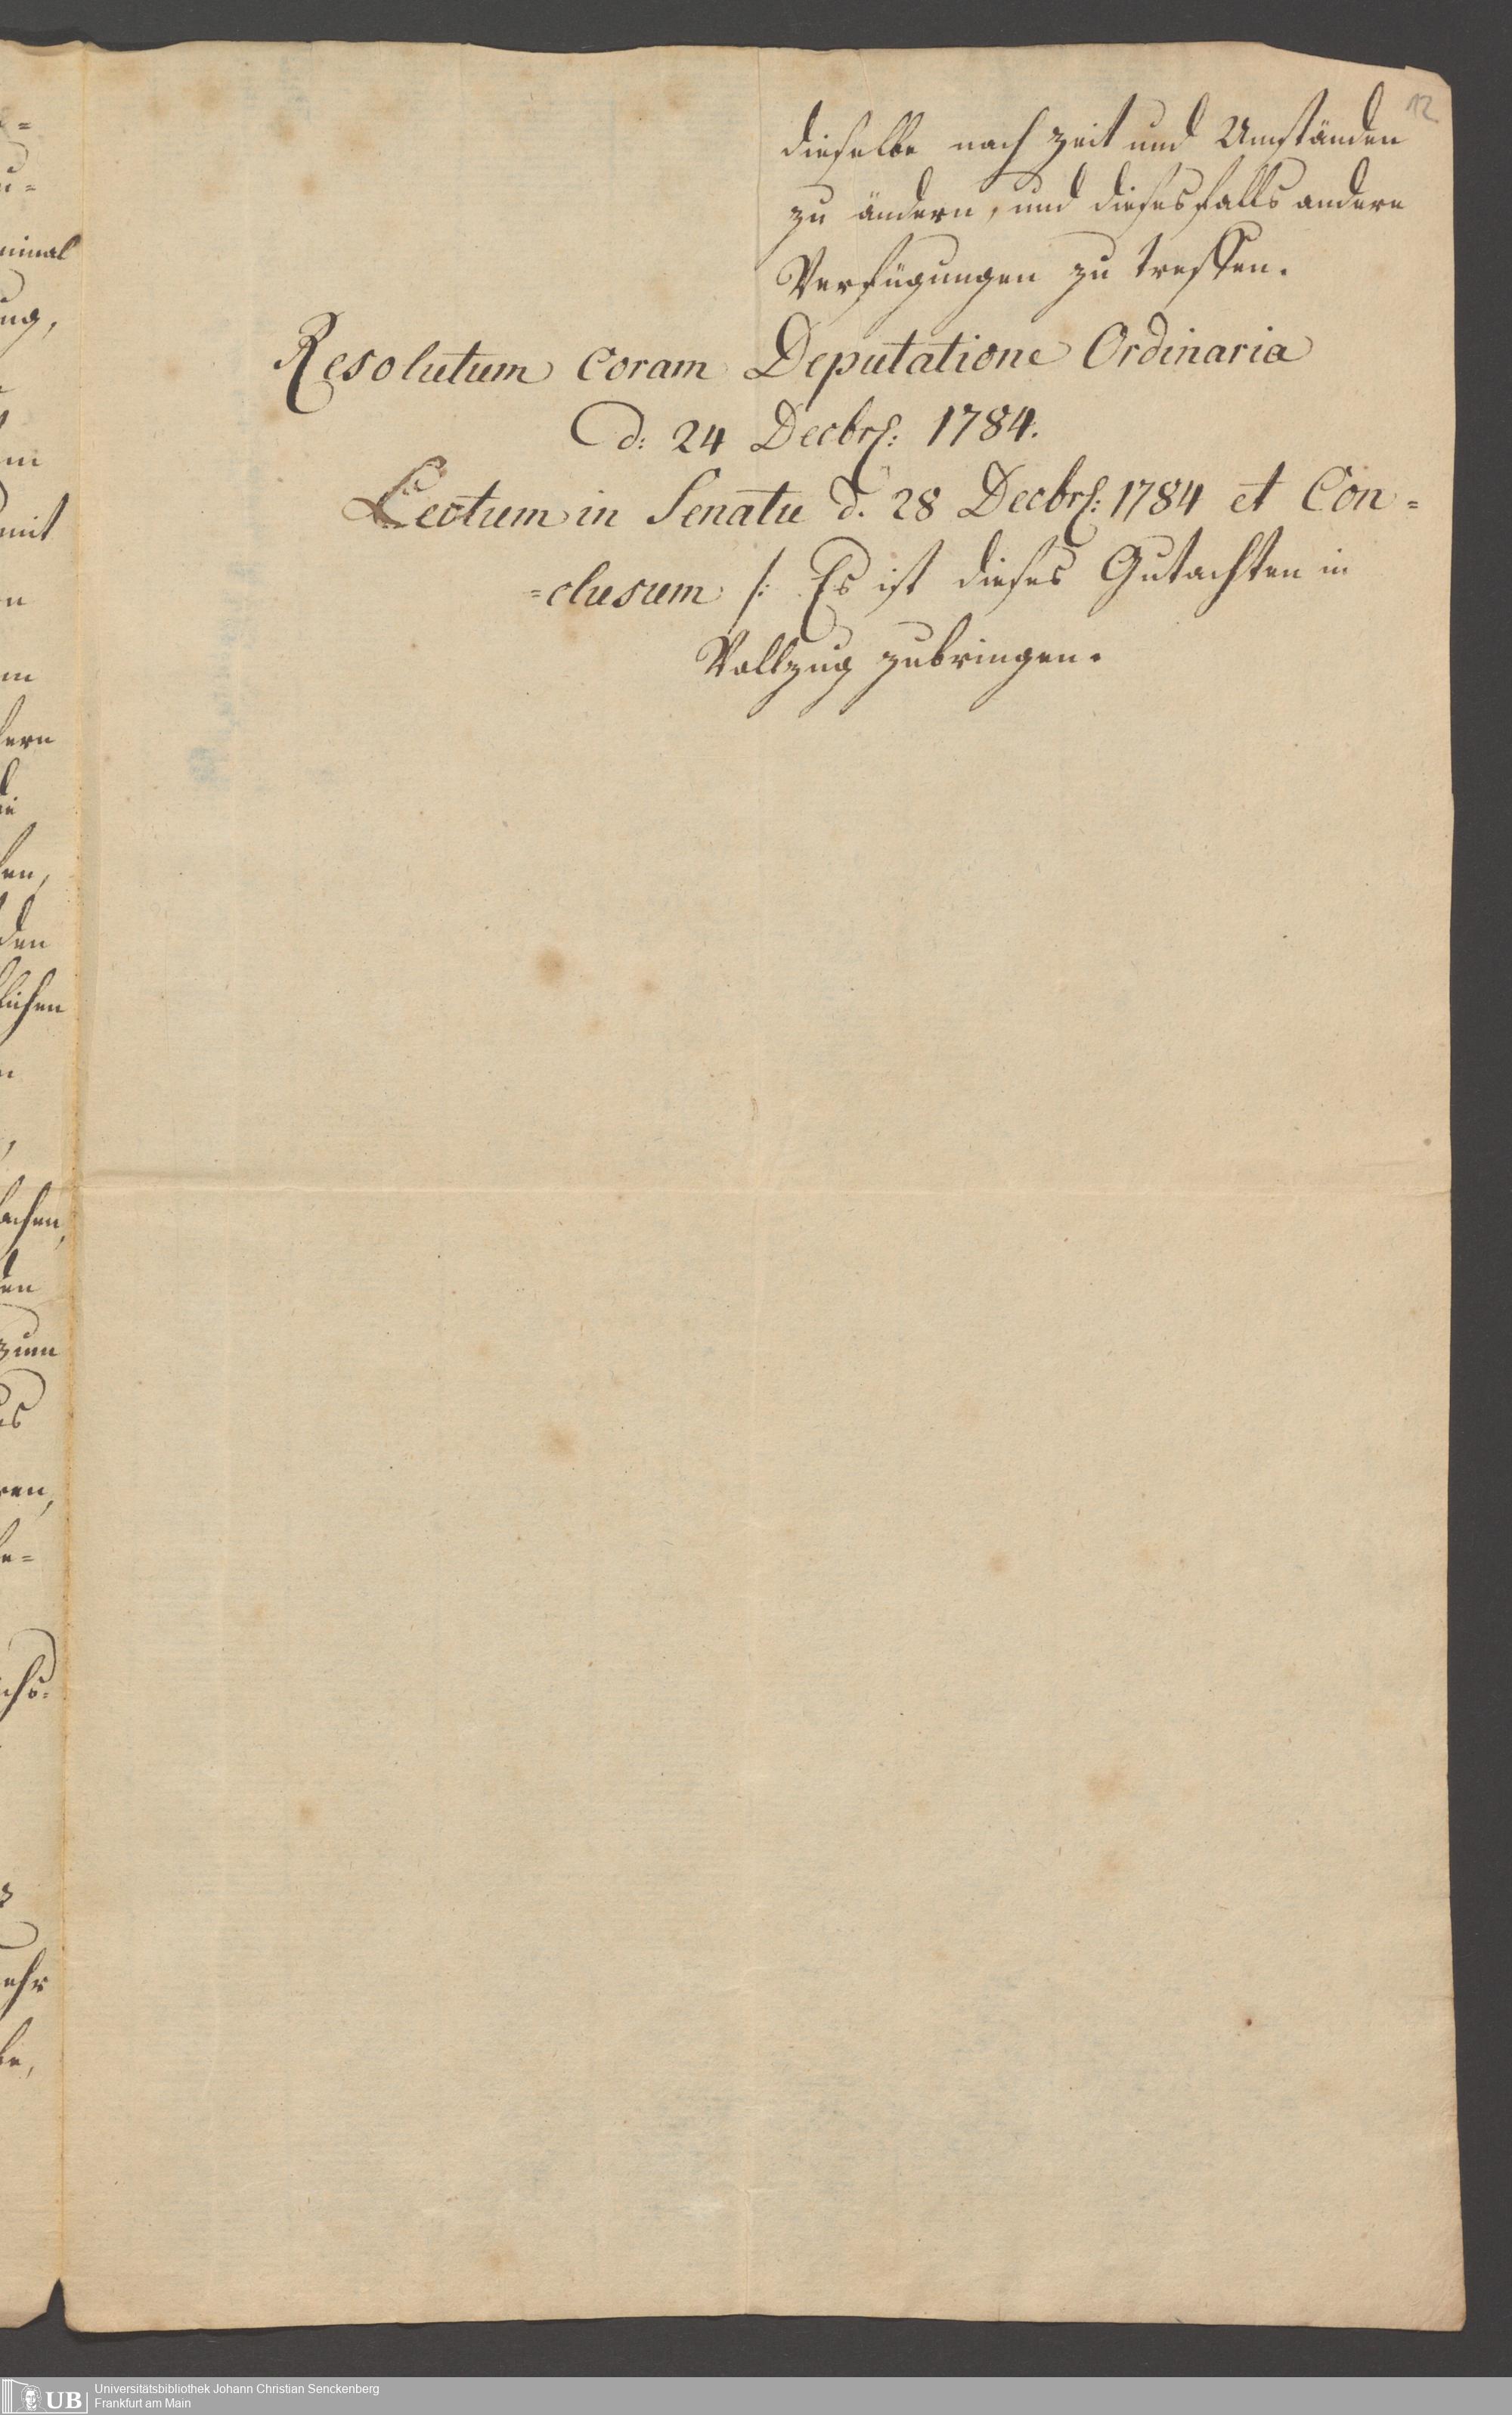 12
dieselbe nach Zeit und Umständen
zu ändern, und diesesfalls andere
Verfügungen zu treffen.
Resolutum Coram Deputatione Ordinaria
d: 24 Decbrs: 1784.
Lectum in Senatu d. 28 Decbrs: 1784 et Con=
=clusum /: Es ist dieses Gutachten in
Vollzug zubringen.
minal
mit
den
lichen
zum
UB
Universitätsbibliothek Johann Christian Senckenberg
Frankfurt am Main